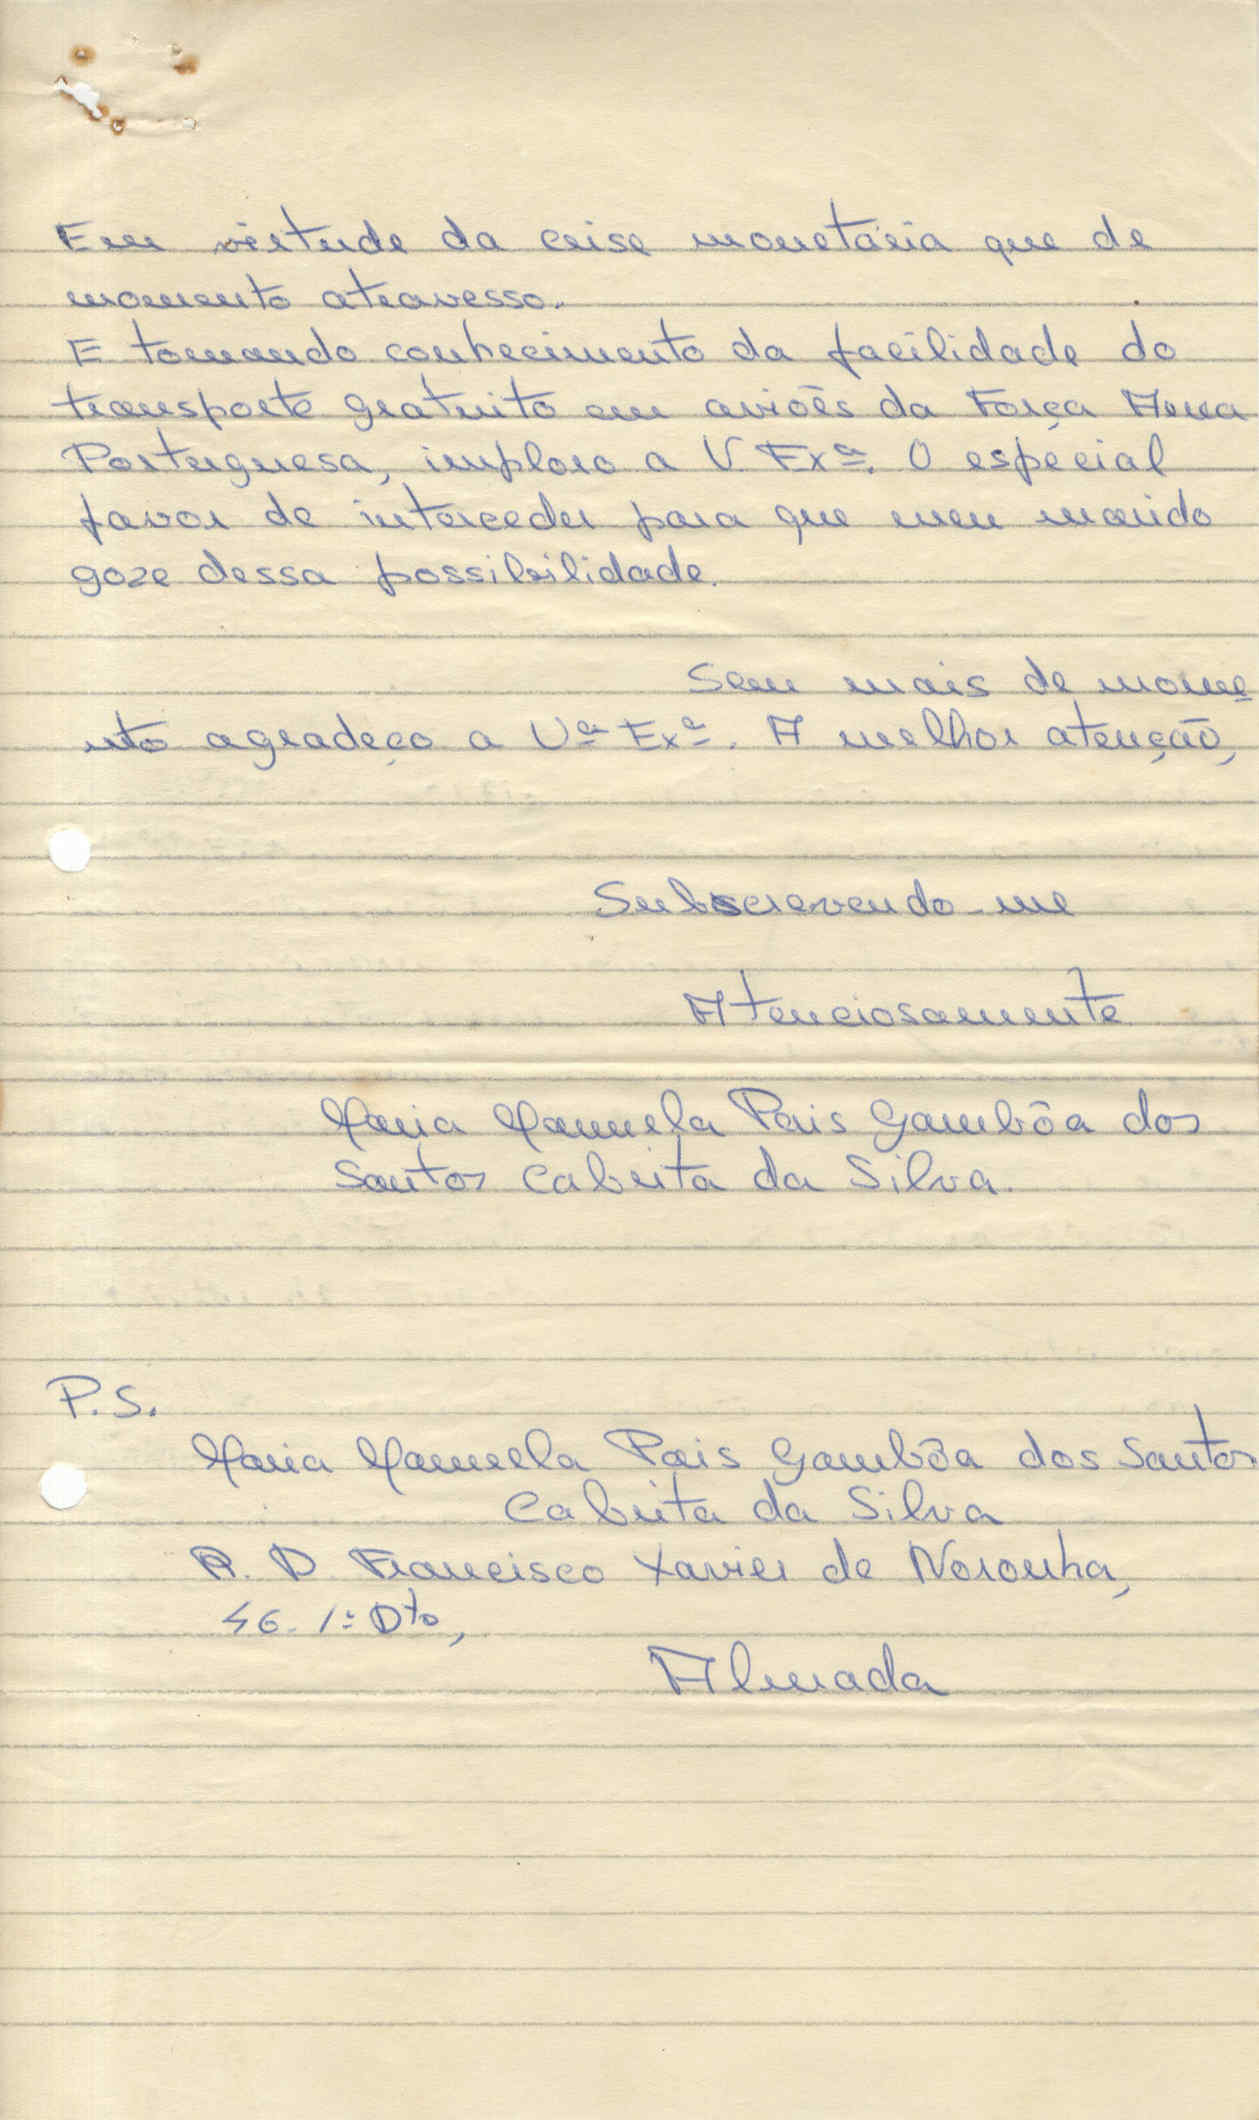 Em virtude da crise monetária que de
momento atravesso.
E tomando conhecimento da facilidade do
transporte gratuito em aviões da Força Aerea
Portuguesa, imploro a V. Exª. O especial
favor de interceder para que meu marido
goze dessa possibilidade.
Sem mais de mome
nto agradeço a Vª Exª. A melhor atenção,
Subscrevendo-me
Atenciosamente
Maria Manuela Pais Gambôa dos
Santos Cabrita da Silva.
P.S.
Maria Manuela Pais Gambôa dos Santos
Cabrita da Silva
R. D. Francisco Xavier de Noronha,
1º Dto,
Almada